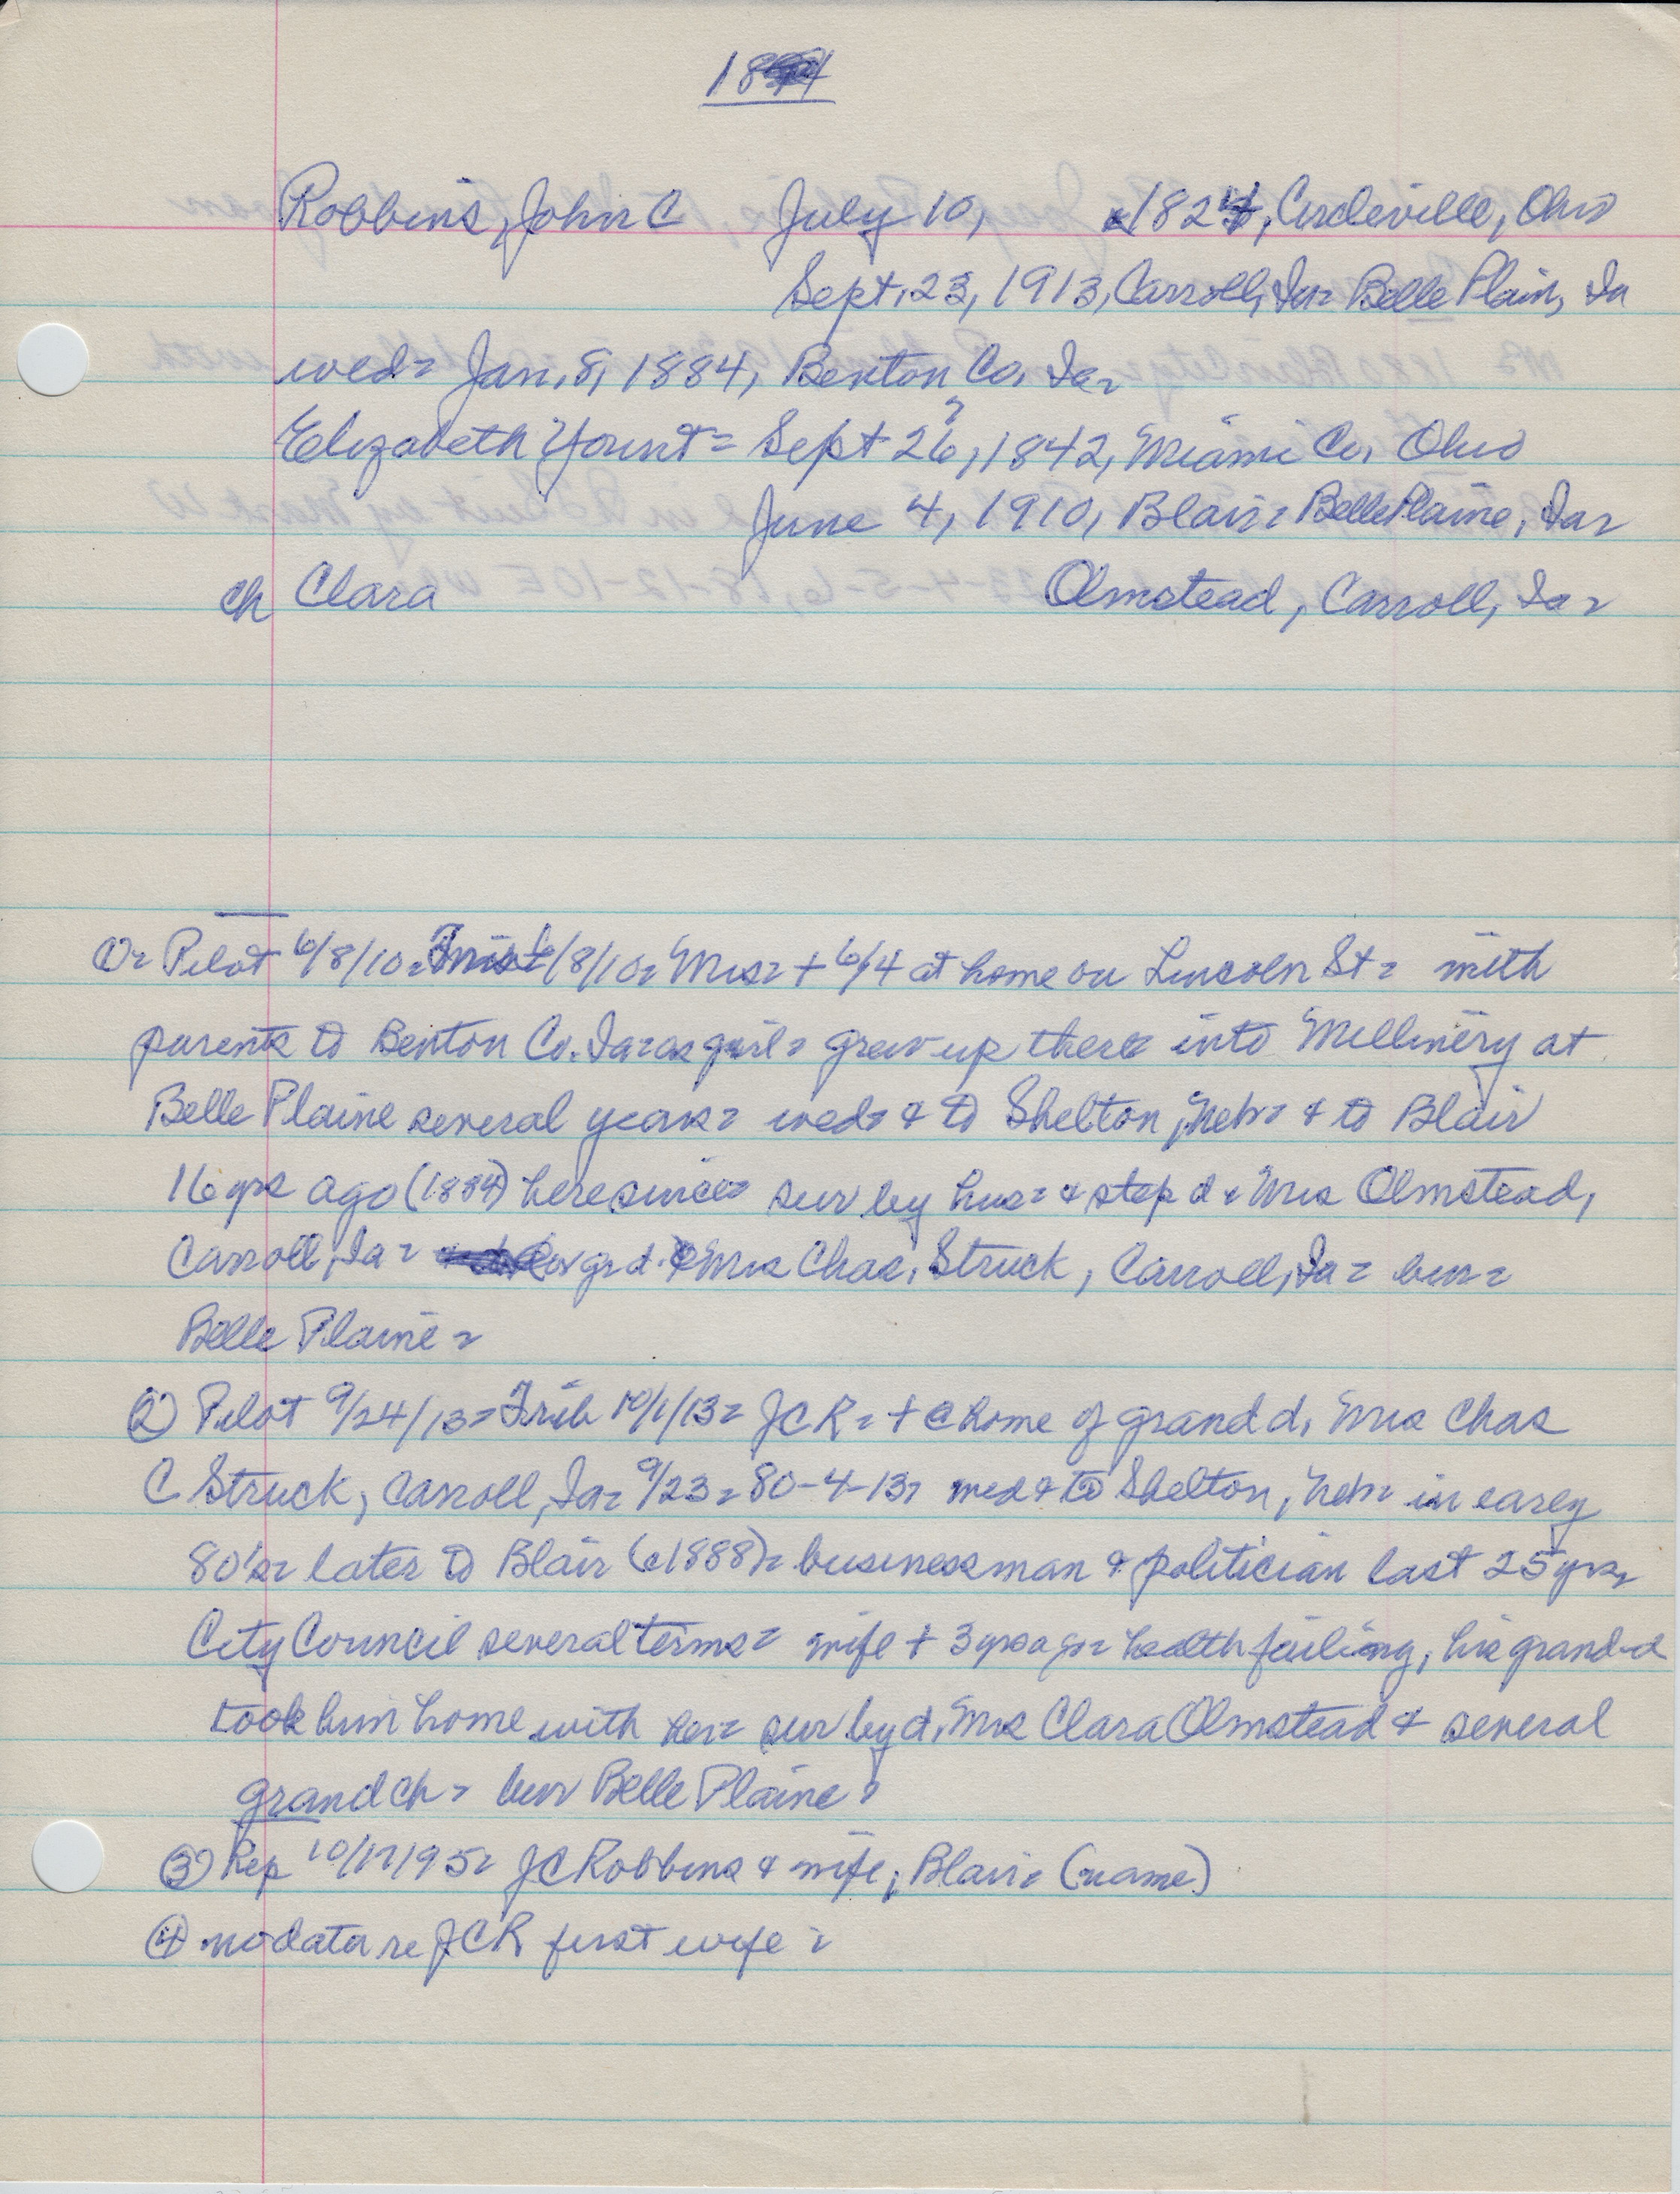 18
Robbins, John C July 10, 1824, Circleville, Ohio
Sept. 23, 1913, Carroll, Ia= Belle Plain, Ia
wed= Jan. 8, 1884, Benton Co. Ia=
Elizabeth Yount= Sept 26?, 1842, Miami Co. Ohio
June 4, 1910, Blair= Belle Plaine, Ia=
ch Clara Olmstead, Carroll, Ia=
①= Pilot 6/8/10= 6/8/10= Mrs= + 6/4 at home on Lincoln St= with
parents to Benton Co. Ia= as girl= grew up there into Millinery at
Belle Plaine several years= wed= & to Shelton, Neb= & to Blair
16 yrs ago (1884) here since= sur by hus= & step d= Mrs Olmstead,
Carroll, Ia= gr d. Mrs Chas. Struck, Carroll, Ia= bur=
Belle Plaine=
② Pilot 9/24/13= Trib 10/1/13= JCR= + @ home of grand d, Mrs Chas
C Struck, Carroll, Ia= 9/23= 80-4-13= wed & to Shelton, Neb= in earey
80's= later to Blair (c1888)= businessman & politician last 25 yrs=
City Council several terms= wife + 3 yrs ago= health failing, his grand-d
took him home with her= sur by d, Mrs Clara Olmstead & several
grand ch= bur Belle Plaine=
③ Rep 10/17/95= JC Robbins & wife, Blair= (name)
④ no data re JCR first wife=